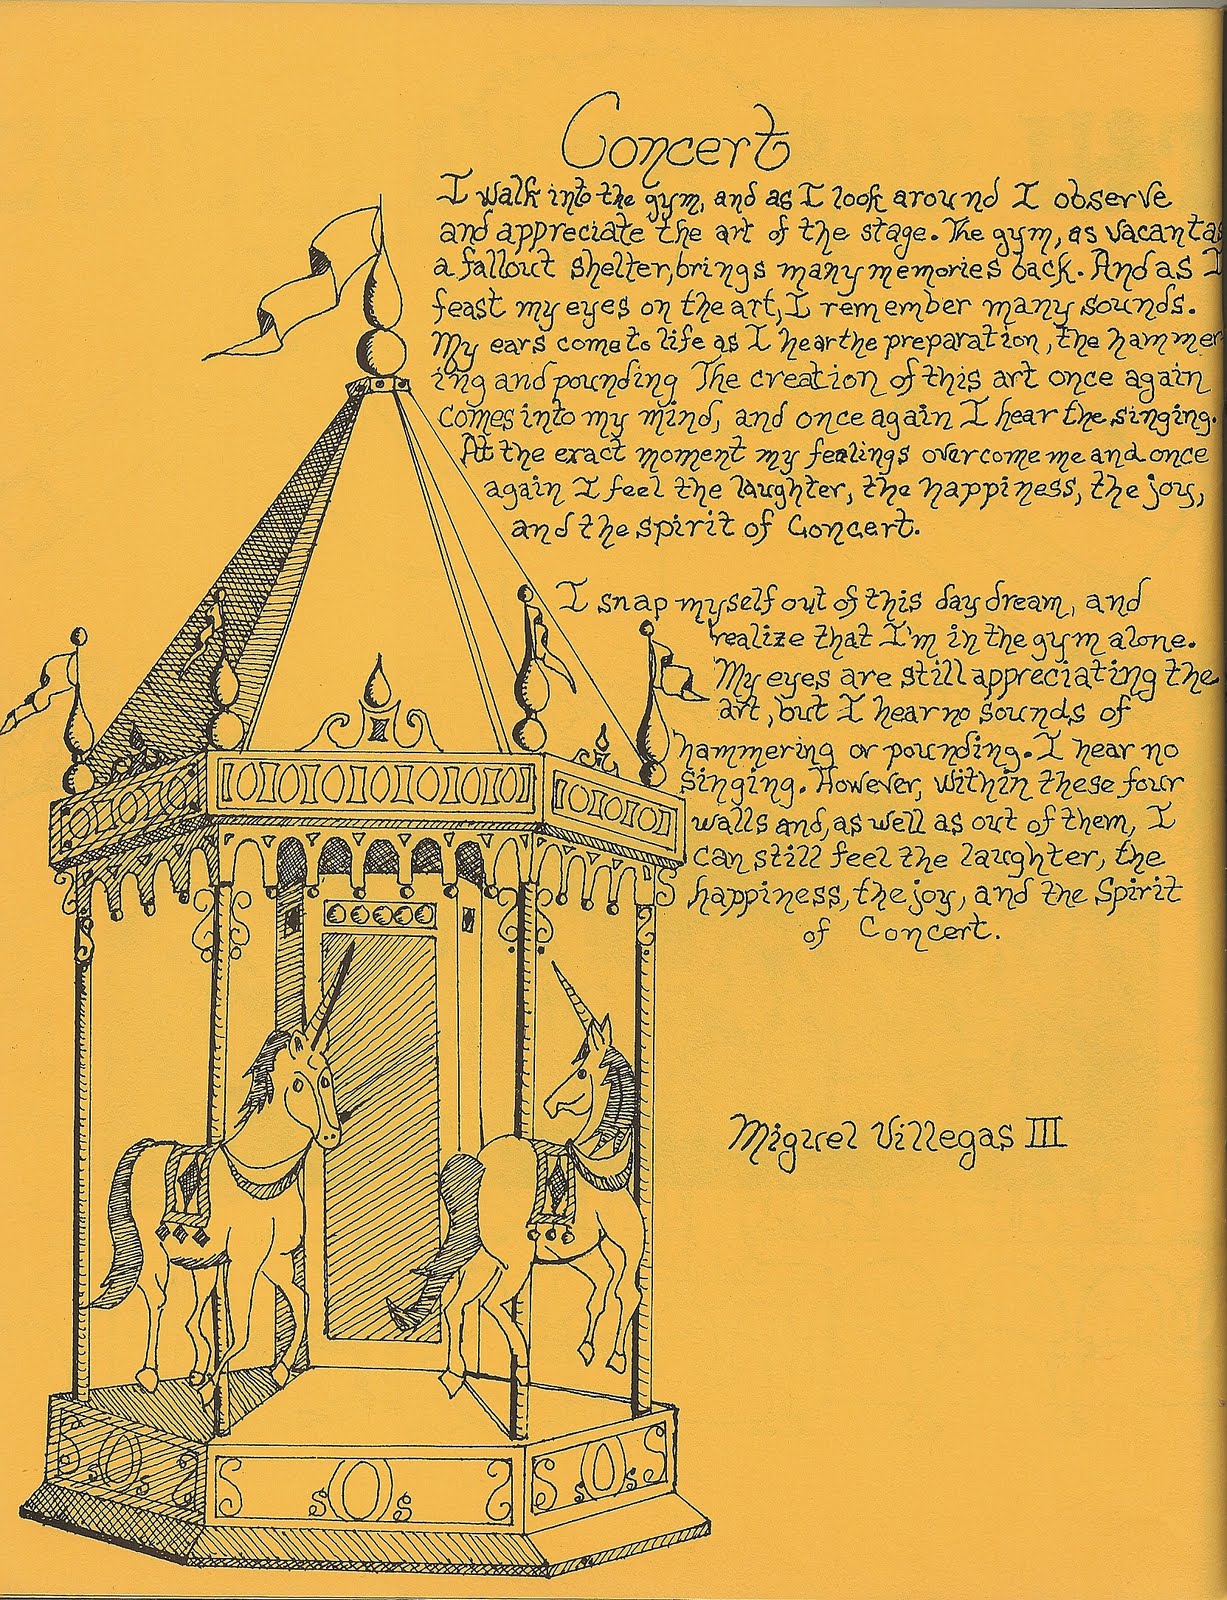 Concert
I walk into the gym, and as I look around I observe
and appreciate the art of the stage. The gym, as vacant as
a fallout shelter, brings many memories back. And as I
feast my eyes on the art, I remember many sounds.
My ears come to life as I hear the preparation, the hammer-
ing and pounding The creation of this art once again
comes into my mind, and once again I hear the singing.
At the exact moment my feelings overcome me and once
again I feel the laughter, the happiness, the joy,
and the spirit of Concert.
I snap myself out of this day dream, and
realize that I'm in the gym alone.
My eyes are still appreciating the
art, but I hear no sounds of
hammering or pounding. I hear no
singing. However, within these four
walls and, as well as out of them, I
can still feel the laughter, the
happiness, the joy, and the Spirit
of Concert.
Miguel Villegas III